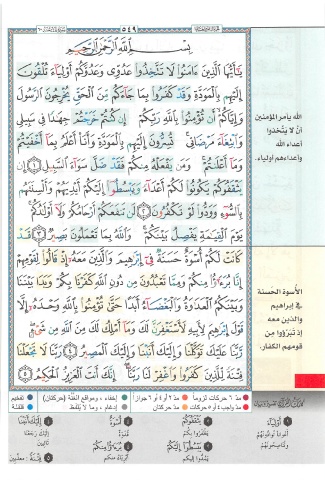 ٥٤٩
بِسْمِ ٱللَّهِ ٱلرَّحْمَٰنِ ٱلرَّحِيمِ
يَٰٓأَيُّهَا ٱلَّذِينَ ءَامَنُوا۟ لَا تَتَّخِذُوا۟ عَدُوِّى وَعَدُوَّكُمْ أَوْلِيَآءَ تُلْقُونَ
إِلَيْهِم بِٱلْمَوَدَّةِ وَقَدْ كَفَرُوا۟ بِمَا جَآءَكُم مِّنَ ٱلْحَقِّ يُخْرِجُونَ ٱلرَّسُولَ
وَإِيَّاكُمْ أَن تُؤْمِنُوا۟ بِٱللَّهِ رَبِّكُمْ إِن كُنتُمْ خَرَجْتُمْ جِهَٰدًا فِى سَبِيلِى
وَٱبْتِغَآءَ مَرْضَاتِى تُسِرُّونَ إِلَيْهِم بِٱلْمَوَدَّةِ وَأَنَا۠ أَعْلَمُ بِمَآ أَخْفَيْتُمْ
وَمَآ أَعْلَنتُمْ وَمَن يَفْعَلْهُ مِنكُمْ فَقَدْ ضَلَّ سَوَآءَ ٱلسَّبِيلِ ١ إِن
يَثْقَفُوكُمْ يَكُونُوا۟ لَكُمْ أَعْدَآءً وَيَبْسُطُوٓا۟ إِلَيْكُمْ أَيْدِيَهُمْ وَأَلْسِنَتَهُم
بِٱلسُّوٓءِ وَوَدُّوا۟ لَوْ تَكْفُرُونَ ٢ لَن تَنفَعَكُمْ أَرْحَامُكُمْ وَلَآ أَوْلَٰدُكُمْ
يَوْمَ ٱلْقِيَٰمَةِ يَفْصِلُ بَيْنَكُمْ وَٱللَّهُ بِمَا تَعْمَلُونَ بَصِيرٌ ٣ قَدْ
كَانَتْ لَكُمْ أُسْوَةٌ حَسَنَةٌ فِىٓ إِبْرَٰهِيمَ وَٱلَّذِينَ مَعَهُۥٓ إِذْ قَالُوا۟ لِقَوْمِهِمْ
إِنَّا بُرَءَٰٓؤُا۟ مِنكُمْ وَمِمَّا تَعْبُدُونَ مِن دُونِ ٱللَّهِ كَفَرْنَا بِكُمْ وَبَدَا بَيْنَنَا
وَبَيْنَكُمُ ٱلْعَدَٰوَةُ وَٱلْبَغْضَآءُ أَبَدًا حَتَّىٰ تُؤْمِنُوا۟ بِٱللَّهِ وَحْدَهُۥٓ إِلَّا
قَوْلَ إِبْرَٰهِيمَ لِأَبِيهِ لَأَسْتَغْفِرَنَّ لَكَ وَمَآ أَمْلِكُ لَكَ مِنَ ٱللَّهِ مِن شَىْءٍ
رَّبَّنَا عَلَيْكَ تَوَكَّلْنَا وَإِلَيْكَ أَنَبْنَا وَإِلَيْكَ ٱلْمَصِيرُ ٤ رَبَّنَا لَا تَجْعَلْنَا
فِتْنَةً لِّلَّذِينَ كَفَرُوا۟ وَٱغْفِرْ لَنَا رَبَّنَآ إِنَّكَ أَنتَ ٱلْعَزِيزُ ٱلْحَكِيمُ ٥
الله يأمر المؤمنين
أن لا يتخذوا
أعداء الله
وأعداءهم أولياء.
الأسوة الحسنة
في إبراهيم
والذين معه
إذ تبرّؤوا من
قومهم الكفار.
مدّ ٦ حركات لزوماً مدّ٢ أو٤ أو ٦ جوازاً إخفاء، ومواقع الغُنَّة (حركتان) تفخيم
مدّ واجب ٤ أو ٥ حركات مدّ حركتان إدغام، وما لا يُلفَظ قلقلة